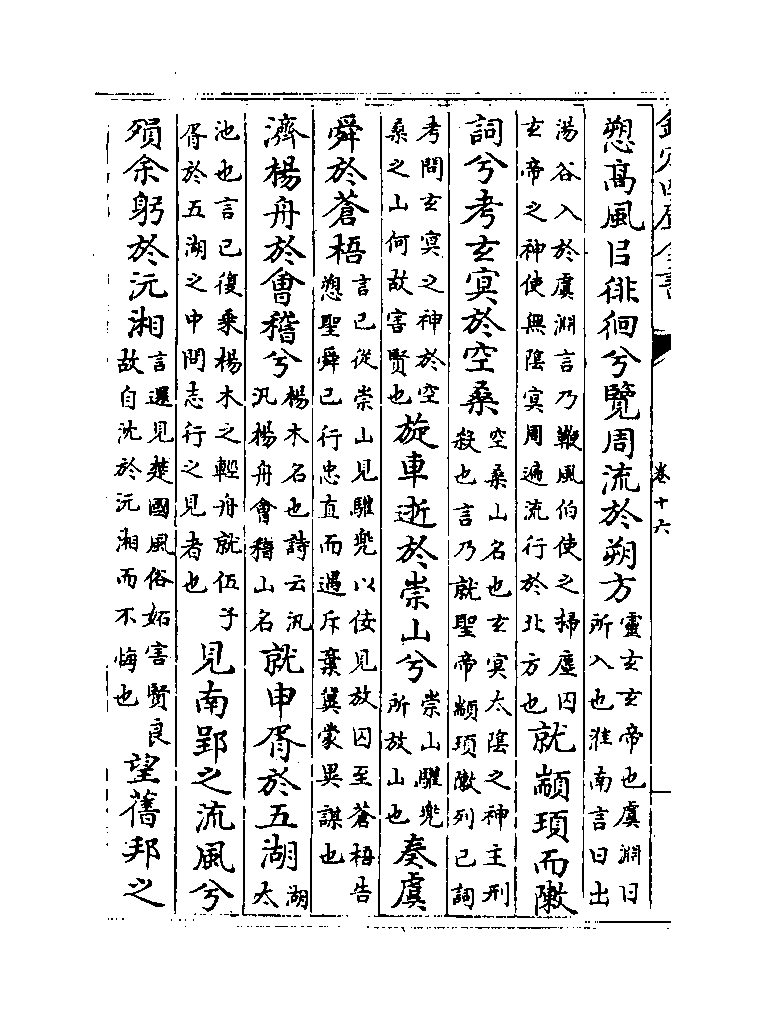 欽定四庫全書
卷十六
愬高風㠯徘徊兮覽周流於朔方
靈玄玄帝也虞淵日
所入也淮南言日出
湯谷入於虞淵言乃鞭風伯使之掃塵囚
玄帝之神使無陰冥周遍流行於北方也
就顓頊而敶
詞兮考玄冥於空桑
空桑山名也玄冥太陰之神主刑
殺也言乃就聖帝顓頊敶列已詞
考問玄冥之神於空
桑之山何故害賢也
旋車逝於崇山兮
崇山驩兜
所放山也
奏虞
舜於蒼梧
言已從崇山見驩兜以佞見放囚至蒼梧告
愬聖舜已行忠直而遇斥棄冀蒙異謀也
濟楊舟於會稽兮
楊木名也詩云汎
汎楊舟會稽山名
就申胥於五湖
湖
太
池也言已復乘楊木之輕舟就伍子
胥於五湖之中問志行之見者也
見南郢之流風兮
殞余躬於沅湘
言還見楚國風俗妬害賢良
故自沈於沅湘而不悔也
望舊邦之